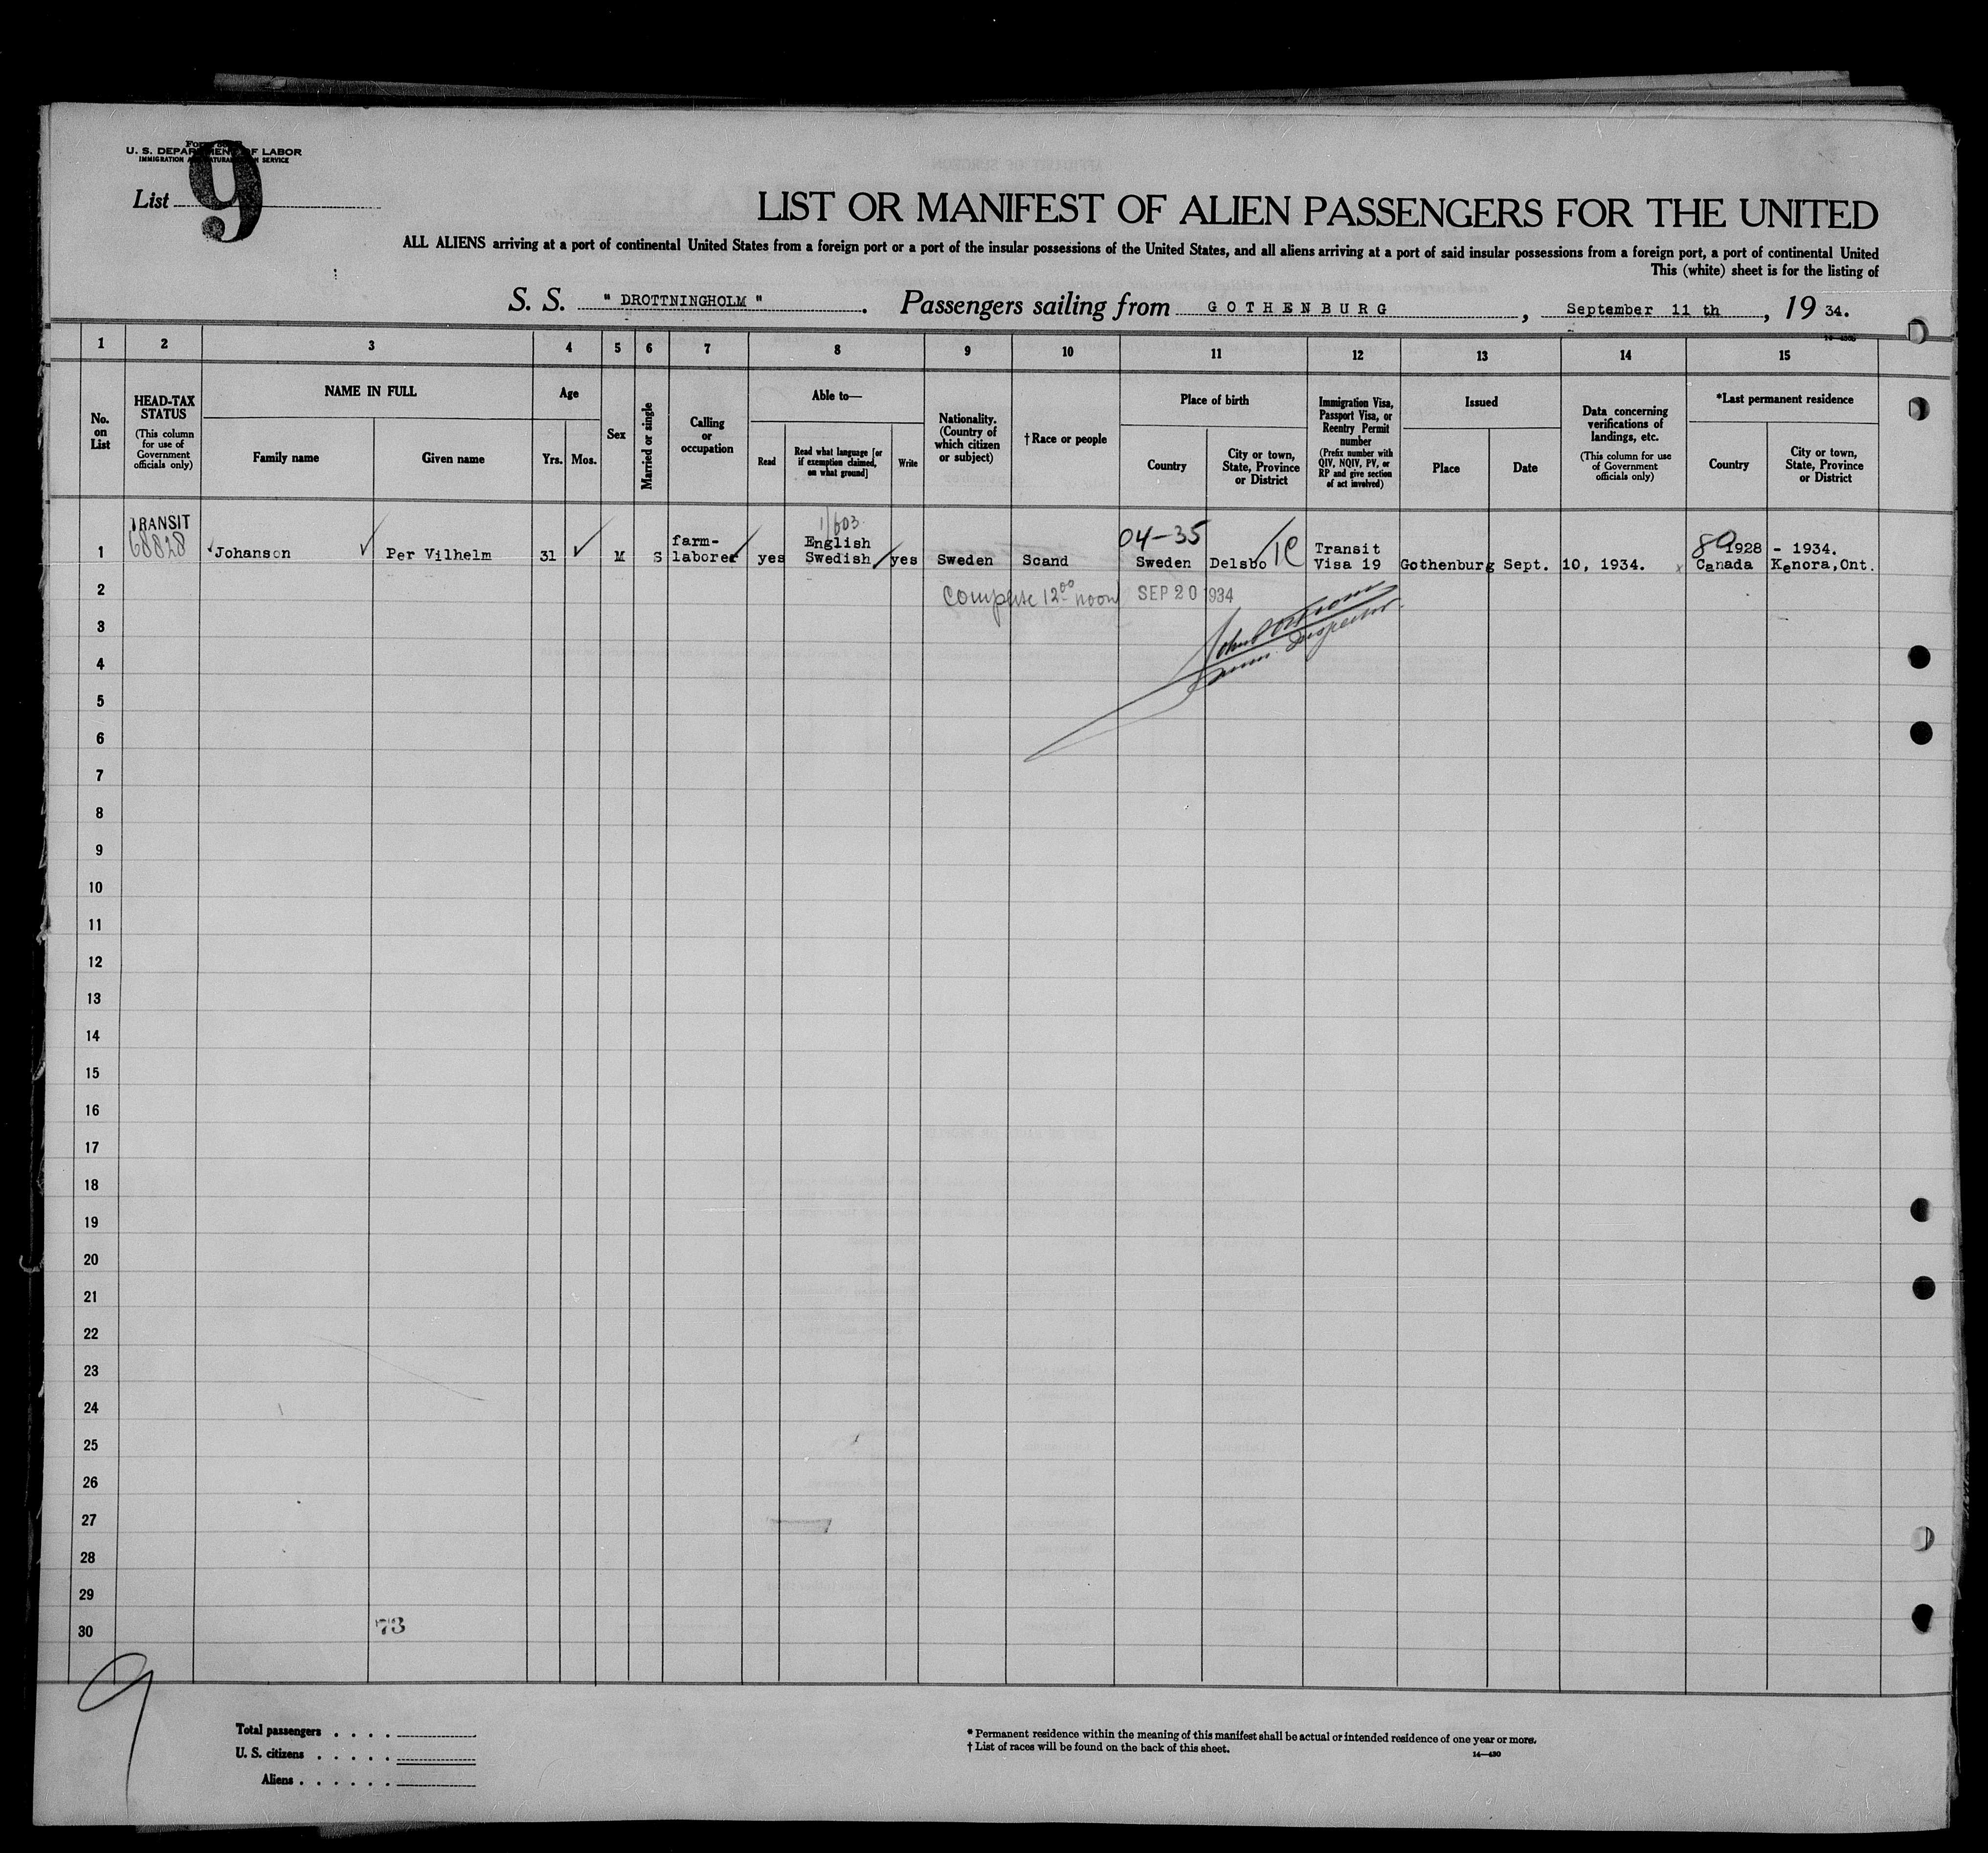 U. S. DEPARTMENT OF LABOR
IMMIGRATION AND NATURALIZATION SERVICE
List 9
LIST OR MANIFEST OF ALIEN PASSENGERS FOR THE UNITED
ALL ALIENS arriving at a port of continental United States from a foreign port or a port of the insular possessions of the United States, and all aliens arriving at a port of said insular possessions from a foreign port, a port of continental United
This (white) sheet is for the listing of
S. S. " DROTTNINGHOLM " . Passengers sailing from GOTHENBURG , September 11 th , 19 34.
1 2 3 4 5 6 7 8 9 10 11 12 13 14 15
No. on List
HEAD-TAX STATUS
(This column for use of Government officials only)
NAME IN FULL
Family name
Given name
Age
Yrs. Mos.
Sex
Married or single
Calling or occupation
Able to—
Read
Read what language [or if exemption claimed, on what ground]
Write
Nationality. (Country of which citizen or subject)
†Race or people
Place of birth
Country
City or town, State, Province or District
Immigration Visa, Passport Visa, or Reentry Permit number
(Prefix number with QIV, NQIV, PV, or RP and give section of act involved)
Issued
Place
Date
Data concerning verifications of landings, etc.
(This column for use of Government officials only)
*Last permanent residence
Country
City or town, State, Province or District
TRANSIT
68828
1/603
04-35
farm-
English
Transit
80
1928 - 1934.
1 Johanson Per Vilhelm 31 M S laborer yes Swedish yes Sweden Scand Sweden Delsbo Visa 19 Gothenburg Sept. 10, 1934. Canada Kenora, Ont.
2 12 00 noon SEP 20 1934
3
Inspector
4
5
6
7
8
9
10
11
12
13
14
15
16
17
18
19
20
21
22
23
24
25
26
27
28
29
30
73
9
Total passengers . . . .
U. S. citizens . . . . .
Aliens . . . . . .
* Permanent residence within the meaning of this manifest shall be actual or intended residence of one year or more.
† List of races will be found on the back of this sheet.
14—430